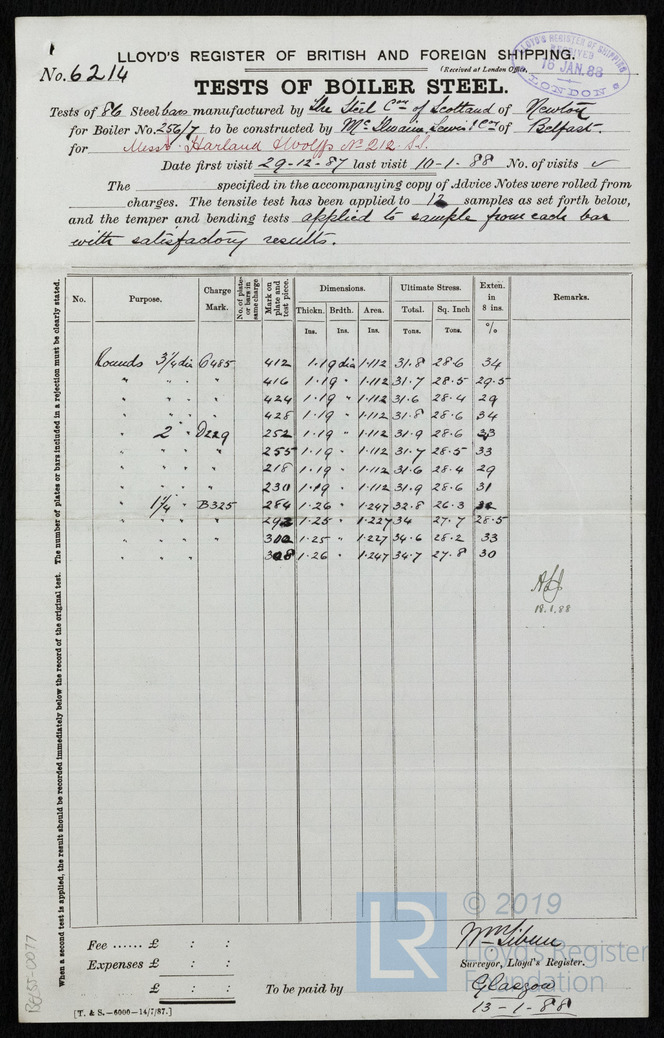 LLOYD'S REGISTER OF BRITISH AND FOREIGN SHIPPING.
No. 6214
(Received at London Office,
LLOYD'S REGISTER OF SHIPPING
RECEIVED
16 JAN.88
LONDON
TESTS OF BOILER STEEL.
Tests of 86 Steel bars manufactured by The Steel Coy of Scotland of Newton
for Boiler No. 256/7 to be constructed by Mc Ilwaine Lewis & Co of Belfast.
for Messrs Harland Wolff's No 212. S.S.
Date first visit 29-12-87 last visit 10-1-88 No. of visits ✓
The specified in the accompanying copy of Advice Notes were rolled from
charges. The tensile test has been applied to 12 samples as set forth below,
and the temper and bending tests applied to sample from each bar
with satisfactory results.
When a second test is applied, the result should be recorded immediately below the record of the original test. The number of plates or bars included in a rejection must be clearly stated.
No. Purpose. Charge Mark. No. of plates or bars in same charge Mark on plate and test piece. Dimensions. Ultimate Stress. Exten. in 8 ins. Remarks.
Thickn. Brdth. Area. Total. Sq. Inch
Ins. Ins. Ins. Tons. Tons. %
Rounds 3/4 dia C485 412 1.19 dia 1.112 31.8 28.6 34
" " " " 416 1.19 " 1.112 31.7 28.5 29.5
" " " " 424 1.19 " 1.112 31.6 28.4 29
" " " " 428 1.19 " 1.112 31.8 28.6 34
" 2 " D229 252 1.19 " 1.112 31.9 28.6 33
" " " " 255 1.19 " 1.112 31.7 28.5 33
" " " " 218 1.19 " 1.112 31.6 28.4 29
" " " " 230 1.19 " 1.112 31.9 28.6 31
" 1 1/4 " B325 284 1.26 " 1.247 32.8 26.3 32
" " " " 292 1.25 " 1.227 34 27.7 28.5
" " " " 302 1.25 " 1.227 34.6 28.2 33
" " " 308 1.26 " 1.247 34.7 27.8 30
18.1.88
Fee ...... £ : :
Expenses £ : :
£ : :
To be paid by
Wm
Surveyor, Lloyd's Register.
Glasgow
13-1-88
[T. & S.—6000—14/7/87.]
LR
© 2019
Lloyd's Register
Foundation